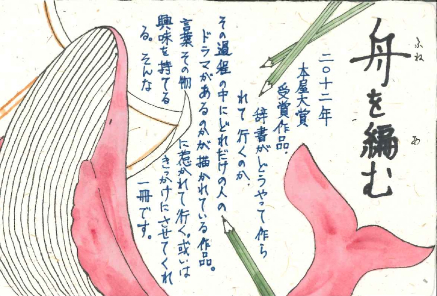 舟を編む
ふね
あ
二〇十二年
本屋大賞
受賞作品。
辞書がどうやって作ら
れて行くのか、
その過程の中にどれだけの人の
ドラマがあるのかが描かれている作品。
言葉その物に惹かれて行く。或いは
興味を持てるきっかけにさせてくれ
る。そんな一冊です。